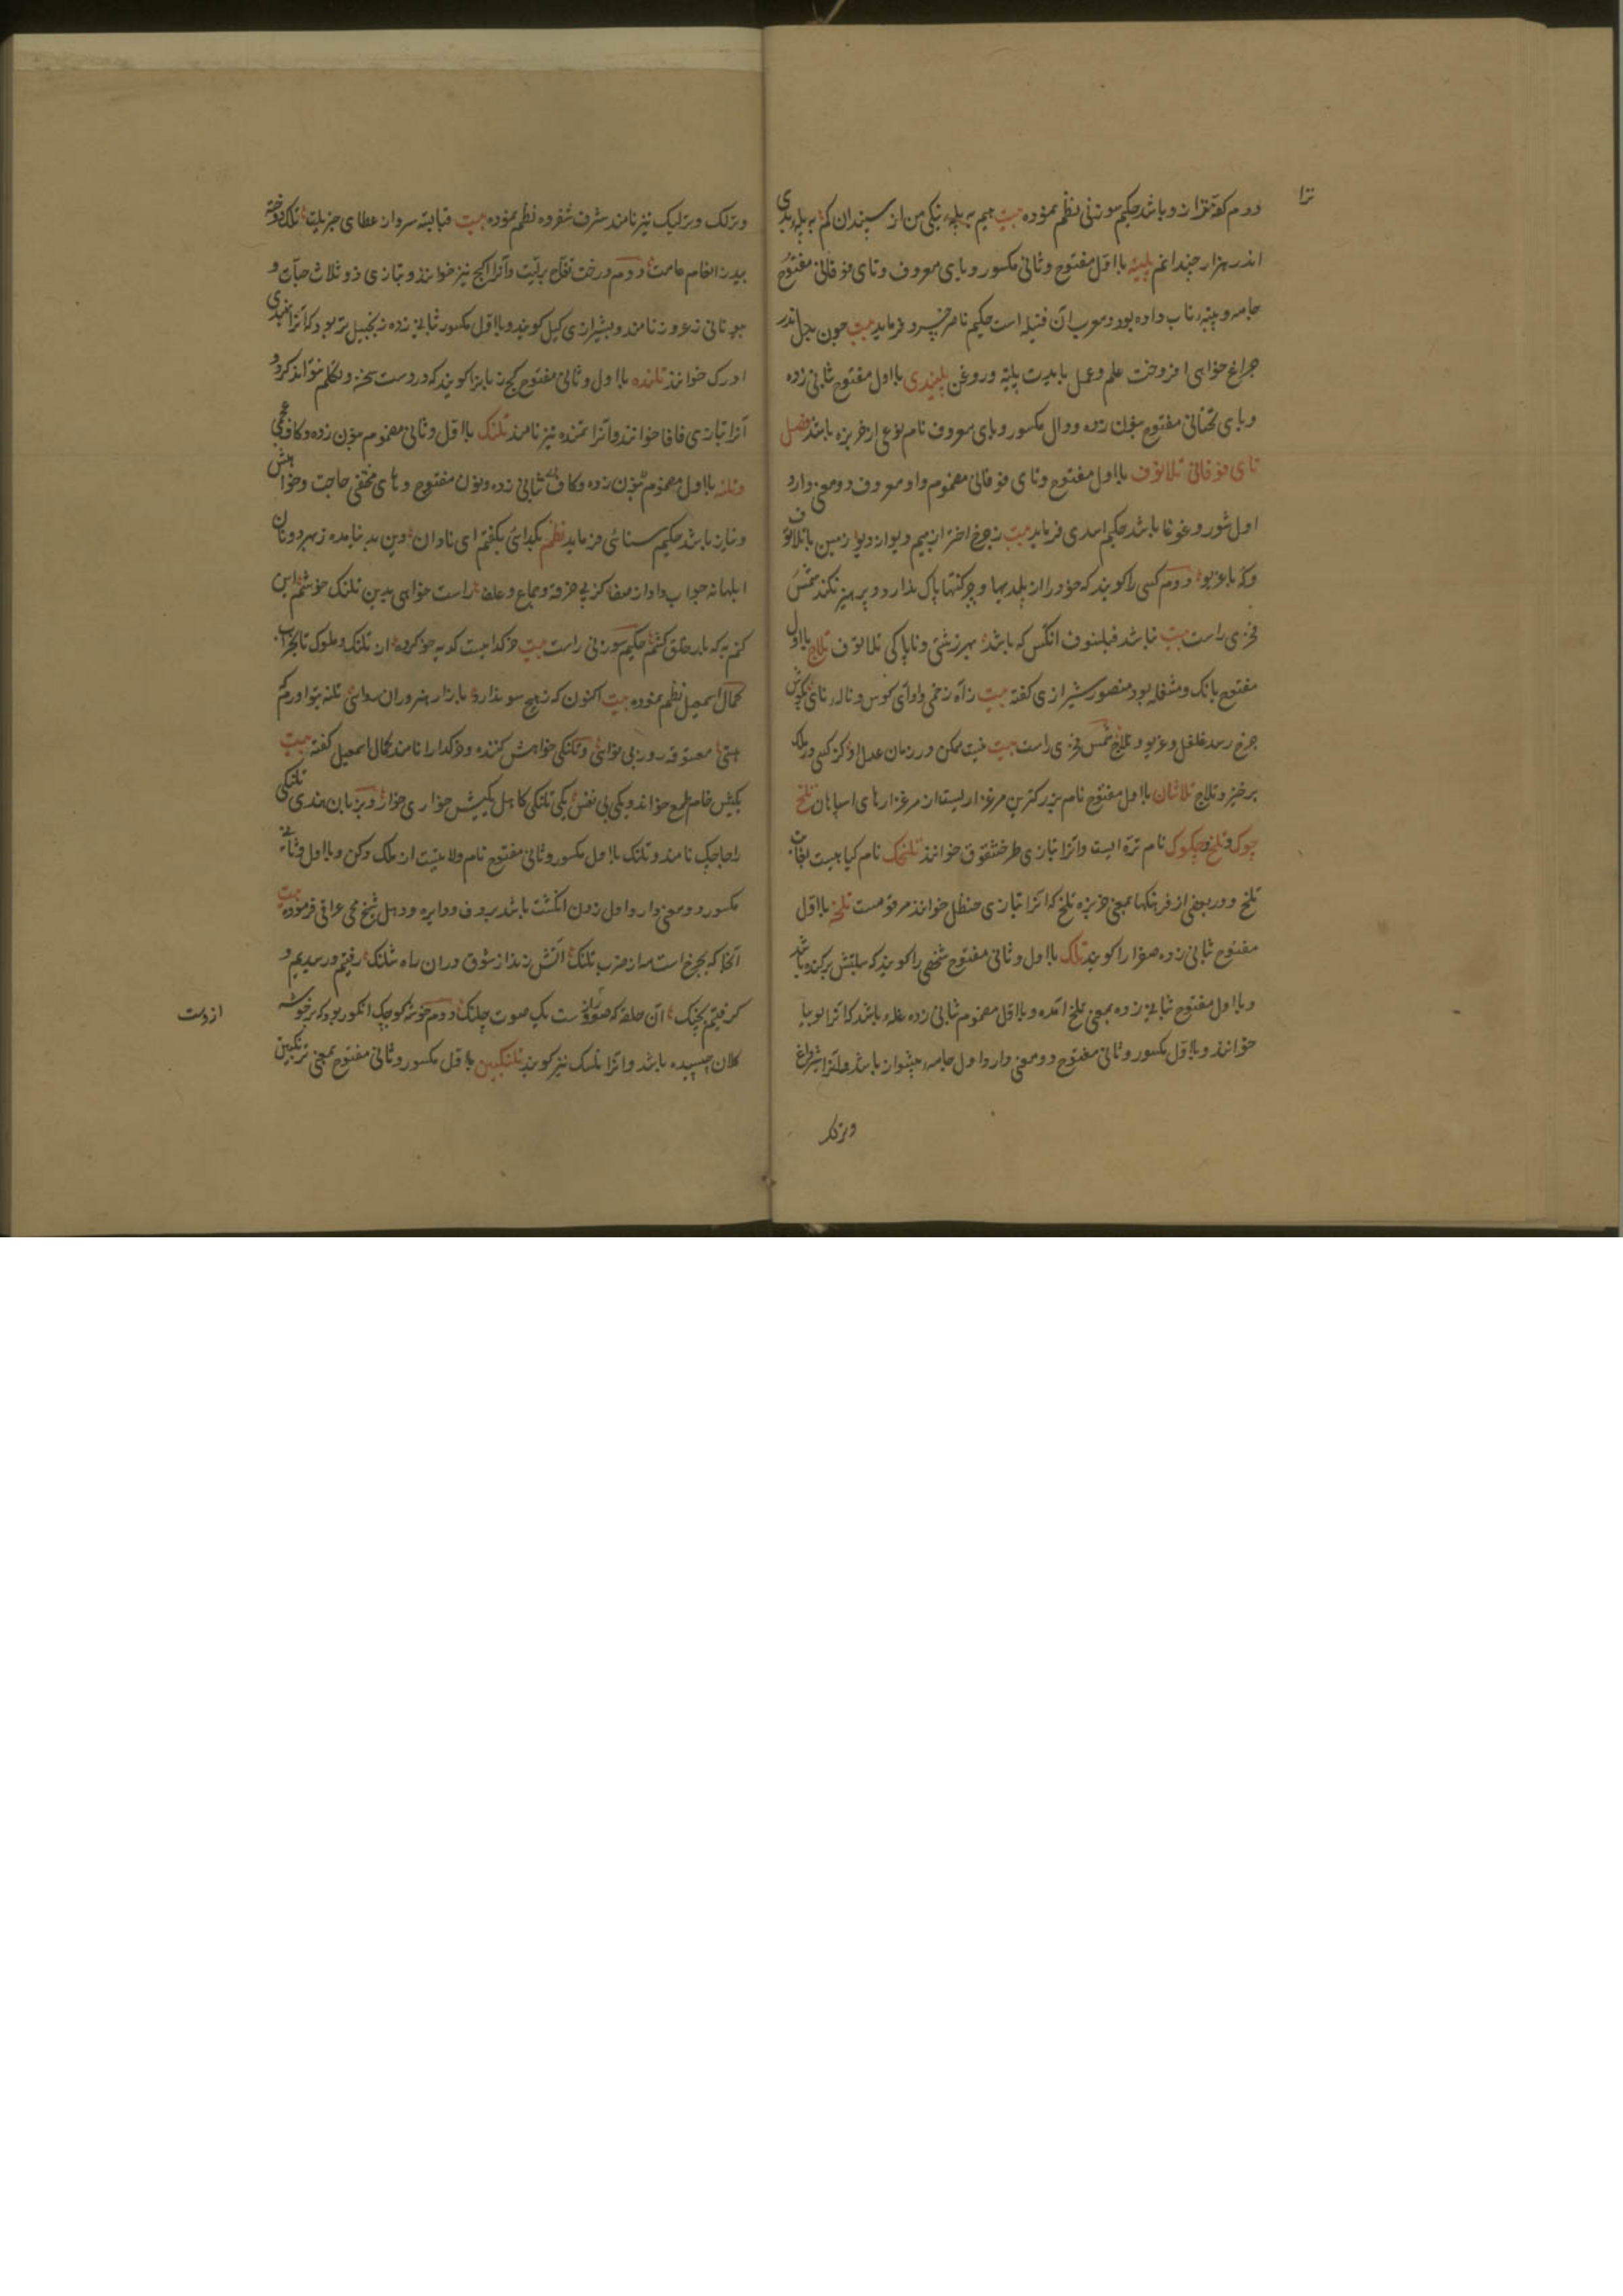 ترا
دوم کفه ترازو باشد حکیم سوزنی نظم نموده بیت هیم به پله نیکی من از سپندان کم به پله بدی
اندر هزار چندانم پلیته با اول مفتوح و ثانی مکسور و یای معروف و تای فوقانی مفتوح
جامه و پنبه تاب داده بود و معرب آن فتیله است حکیم ناصر خسرو فرماید بیت چون بدل اندر
چراغ خواهی افروخت علم و عمل بایدت پلیته و روغن پلیندی با اول مفتوح ثانی زده
و یای تحتانی مفتوح بنون زده و دال مکسور و یای معروف نام نوعی از خربزه باشد فصل
تای فوقانی تلاتوف با اول مفتوح و تای فوقانی مضموم و واو معروف دو معنی دارد
اول شور و غوغا باشد حکیم اسدی فرماید بیت ز چرخ اختر از بیم و دیوان زمین با تلاتوف
و که با غریو دوم کسی را گویند که خود را از پلیدیها و چرکنیها پاک ندارد و پرهیز نکند شمس
فخری راست بیت نباشد فیلسوف انکس که باشد بهر زشتی و ناپاکی تلاتوف تلاج با اول
مفتوح بانک و مشغله بود منصور شیرازی گفته بیت ز آه زخمی و آوای کوس و ناله نای بگوش
چرخ رسد غلغل و غریو و تلاج شمس فخری راست بیت نیست ممکن در زمان عدل او کز کسی در ملک
برخیزد تلاج تلاتان با اول مفتوح نام بزرکترین مرغزاریست از مرغزارهای اسپاهان تلخ
چوک و تلخ چکوک نام تره ایست و آنرا بتازی طرخشقوق خوانند تلخک نام گیاهیست بغایت
تلخ و در بعضی از فرهنگها بمعنی خربزه تلخ که آنرا بتازی حنظل خوانند مرقومست تلخه با اول
مفتوح ثانی زده صفرا را گویند تلک با اول و ثانی مفتوح شخصی را گویند که سبلتش برکنده باشد
و با اول مفتوح ثانی زده بمعنی تلخ آمده و با اول مضموم ثانی زده غله باشد که آنرا لوبیا
خوانند و با اول مکسور و ثانی مفتوح دو معنی دارد اول جامه پیشواز باشد و آنرا
وترلک
وترلک و ترلیک نیز نامند شرف شفروه نظم نموده بیت قبا بسته سرو از عطای جزیلت تلک دوخته
بید ز انعام عامت دوم درخت آنرا کیج نیز خوانند و بتازی ذو ثلاث حبات و
یونانی زعرور نامند و بشیرازی کیل گویند و با اول مکسور ثانی زده زنجبیل تر بود که آنرا بهندی
ادرک خوانند تلنده با اول و ثانی مفتوح کج زبانرا گویند که درست سخن و تکلم نتواند کرد و
آنرا بتازی فافا خوانند و آنرا تمنده نیز نامند تلنک با اول و ثانی مضموم بنون زده و کاف عجمی
و تلنه با اول مضموم بنون زده و کاف ثانی زده و نون مفتوح و های مختفی حاجت و خواهش
و نیاز باشد حکیم سنائی فرماید نظم بگدائی بگفتم ای نادان دین به نامده ز بهر دو نان
ابلهانه جواب داد از صفا کز پی خرقه و جماع و علف راست خواهی بدین تلنک خوشم این
کنم به که بار خلق کشم حکیم سوزنی راست بیت خر گدایست گدیه خو کرده از تلنک و ملوک تا
کمال اسمعیل نظم نموده بیت اکنون که ز هیچ سو ندارد بازار هنروران روائی تلنه نتوا درم که
هستی معشوقه روز بی نوائی و تلنکی خواهش کننده و خر گدا را نامند کمال اسمعیل گفته بیت
یکیش خام طمع خواند و یکی بی نفس یکی تلنکی کاهل یکیش خواری خوار و بزبان هندی تلنکی
را چابک نامند و تلنک با اول مکسور و ثانی مفتوح نام ولایتیست از ملک دکن و با اول و ثانی
مکسور دو معنی دارد اول زدن انگشت باشد بر دف و دایره و دهل شیخ عراقی فرموده بیت
آنجا که بچرخ است مه از ضرب تلنک آتش زند از شوق دران راه شلنک رفتیم و رسیدیم و
گرفتیم بچنک آن حلقه که است یک صوت چلنک دوم خوشه کوچک انگور بود که بر خوشه
کلان چسپیده باشد و آنرا تلسک نیز گویند تلنکبین با اول مکسور و ثانی مفتوح بمعنی ترنکبین
از دست